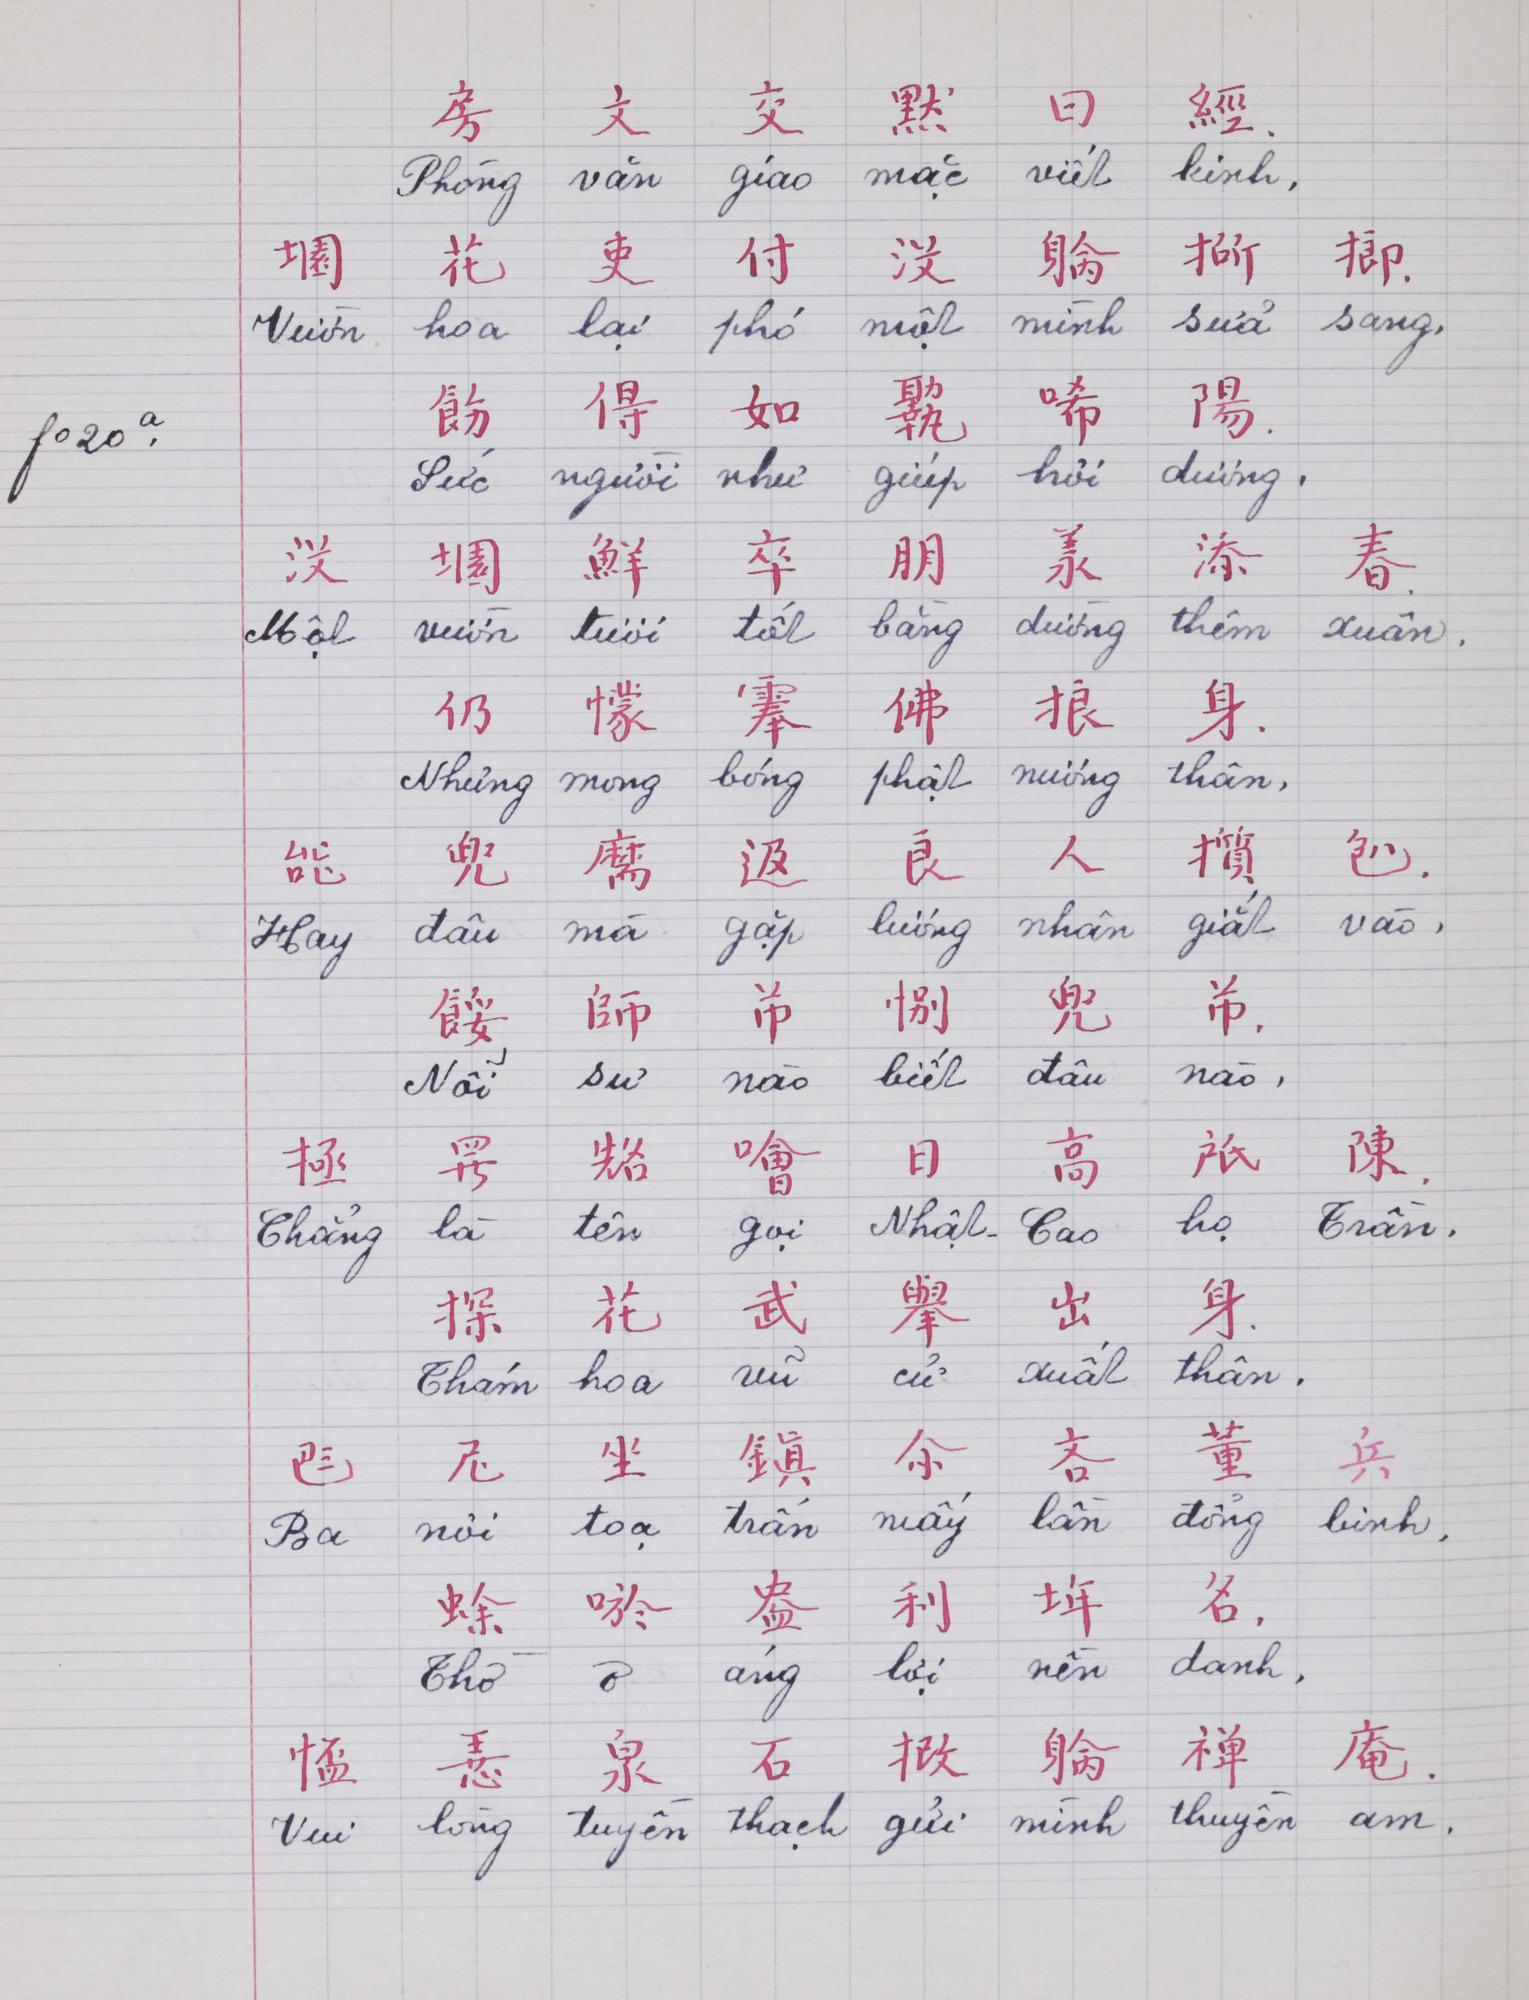 房 文 交 默 曰 經.
Phòng văn giao mặc viết kinh,
園 花 吏 付 沒 𨉓 𢭮 𢲣.
Vườn hoa lại phó một mình sửa sang,
飭 㝵 如 𠢞 唏 陽.
f° 20ª.
Sức người như giúp hơi dương,
沒 園 鮮 卒 朋 羕 添 春.
Một vườn tươi tốt bằng dường thêm xuân.
仍 懞 𩃳 佛 㨿 身.
Những mong bóng phật nương thân,
咍 兜 𦓡 返 良 人 攢 𠓨.
Hay đâu mà gặp lương nhân giắt vào,
餒 師 芇 別 兜 芇.
Nỗi sư nào biết đâu nào,
拯 羅 𠸛 噲 日 高 𢩜 陳.
Chẳng là tên gọi Nhật-Cao họ Trần.
探 花 武 舉 出 身.
Thám hoa vũ cử xuất thân.
𠀧 尼 坐 鎮 余 吝 董 兵
Ba nơi toạ trấn mấy lần đổng binh,
蜍 唹 盎 利 𡋂 名.
Thờ ơ áng lợi nền danh,
𢝙 𢚸 泉 石 𢭮 𨉓 禅 庵.
Vui lòng tuyền thạch gửi mình thuyền am.